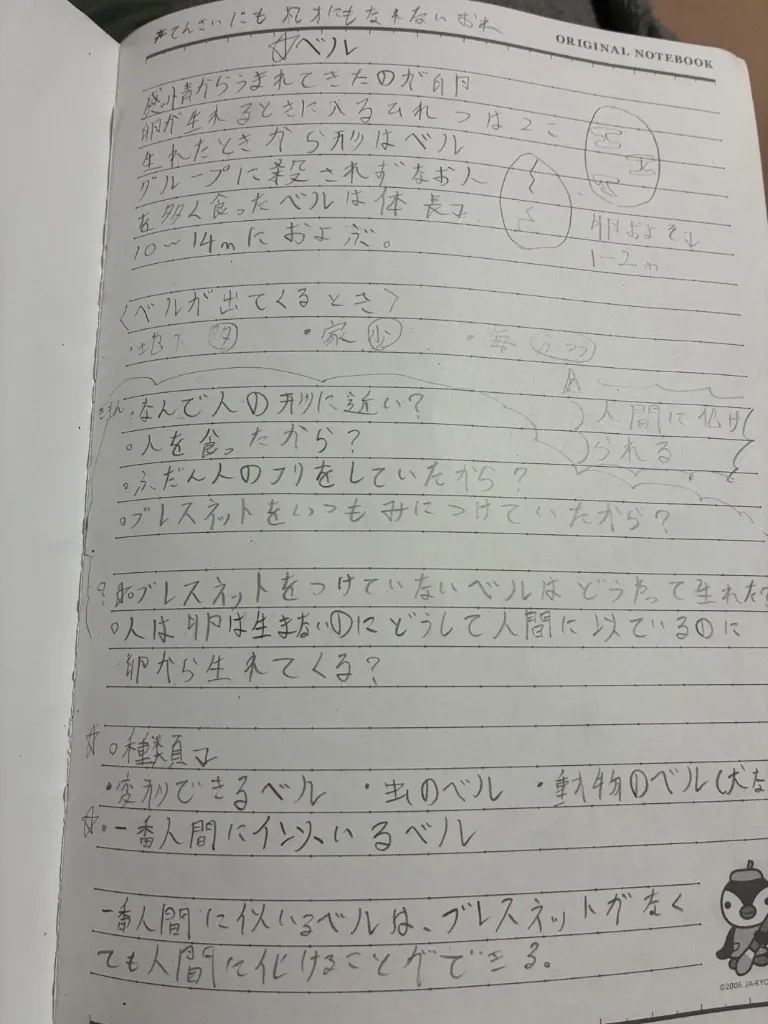 #てんさいにも凡才にもなれないおれ
ORIGINAL NOTEBOOK
☆ベル
感情からうまれてきたのが卵
卵が生れるときに入るひれつは2こ
生れたときから形はベル
グループに殺されずなお人
を多く食ったベルは体長↓
10〜14mにおよぶ。
卵およそ↓
1-2m
〈ベルが出てくるとき〉
・地下 ・家 少 ふつう
ぎもん・なんで人の形に近い?
人間に化け
られる
。人を食ったから?
。ふだん人のフリをしていたから?
。ブレスネットをいつもみにつけていたから?
? ブレスネットをつけていないベルはどうやって生れた
。人は卵は生まないのにどうして人間に以ているのに
卵から生れてくる?
☆。種類↓
・変形できるベル ・虫のベル ・動物のベル(犬な
☆・一番人間に いるベル
一番人間に似いるベルは、ブレスネットがなく
ても人間に化けることができる。
©2006 JA-KYO